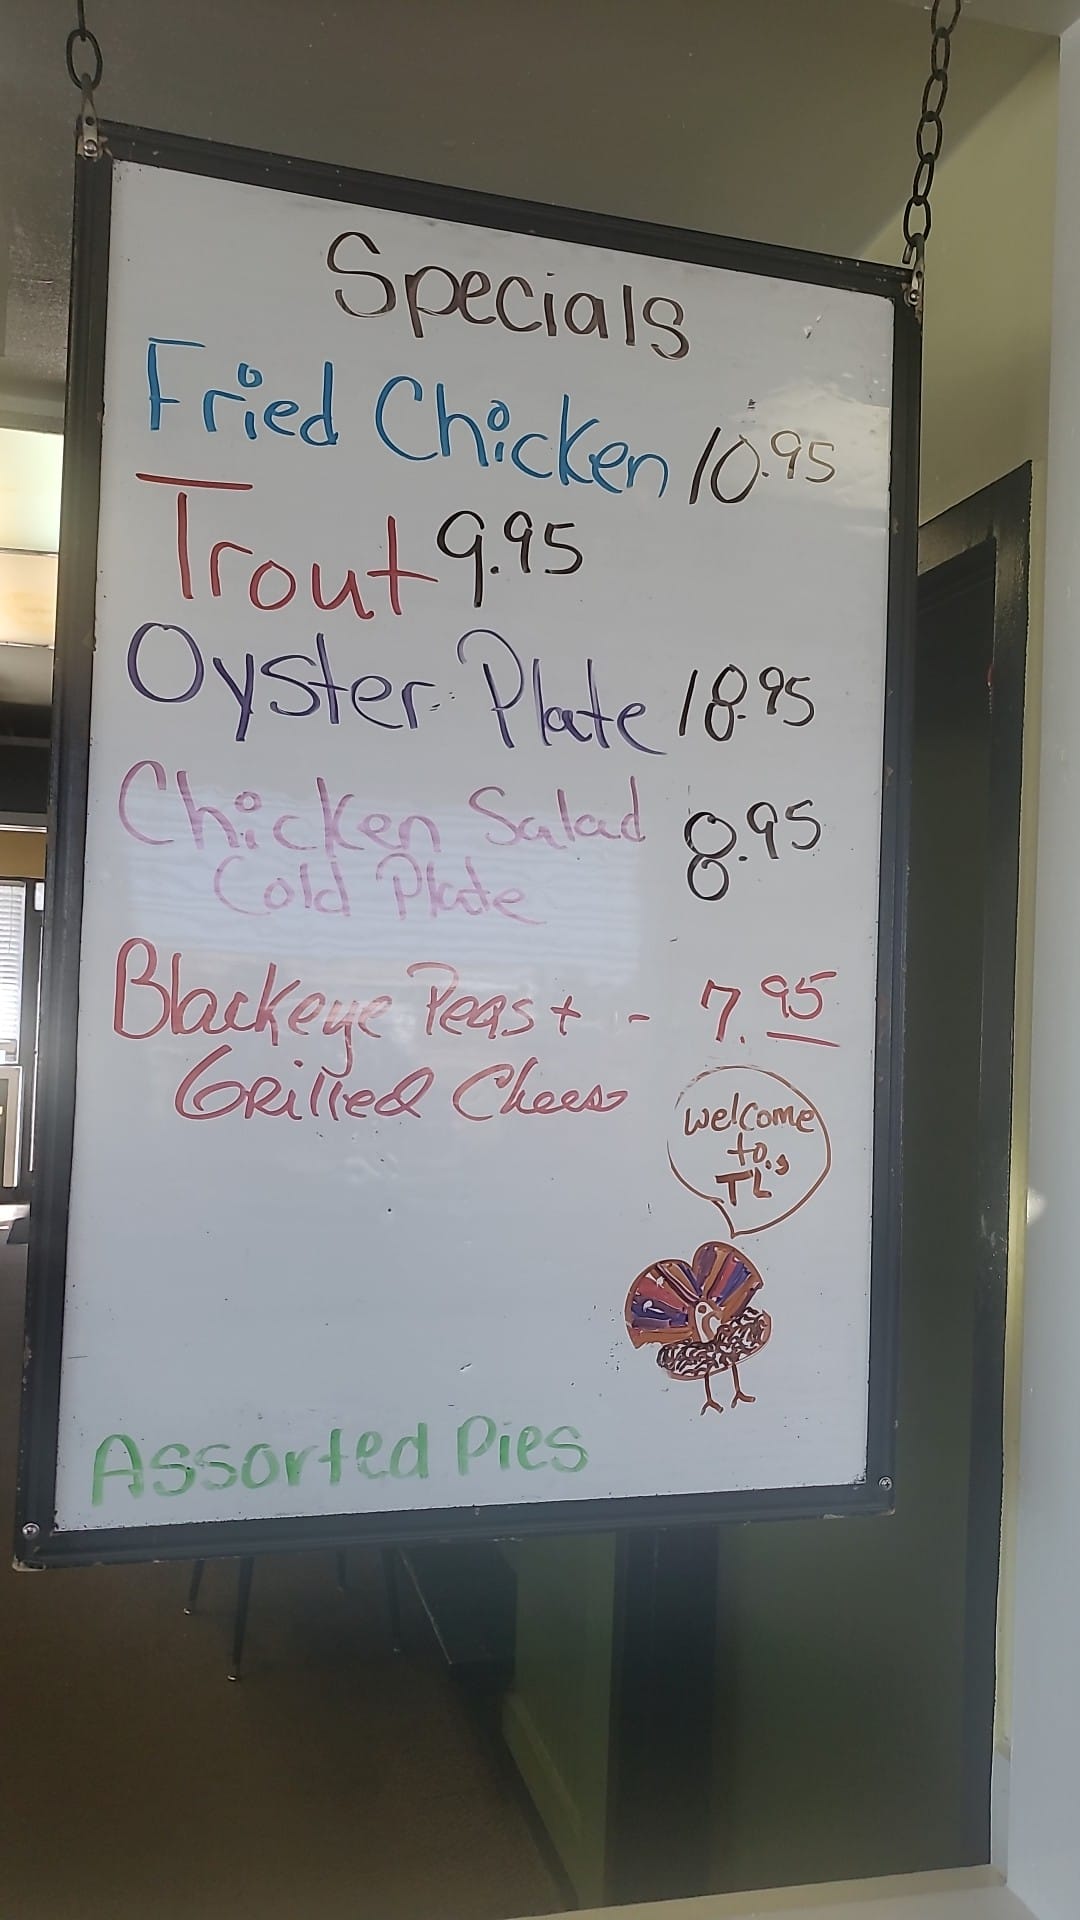 Specials
Fried Chicken 10.95
Trout 9.95
Oyster Plate 18.95
Chicken Salad 8.95
Cold Plate
Blackeye Peas + - 7.95
Grilled Cheese
Welcome
to
TL's
Assorted Pies